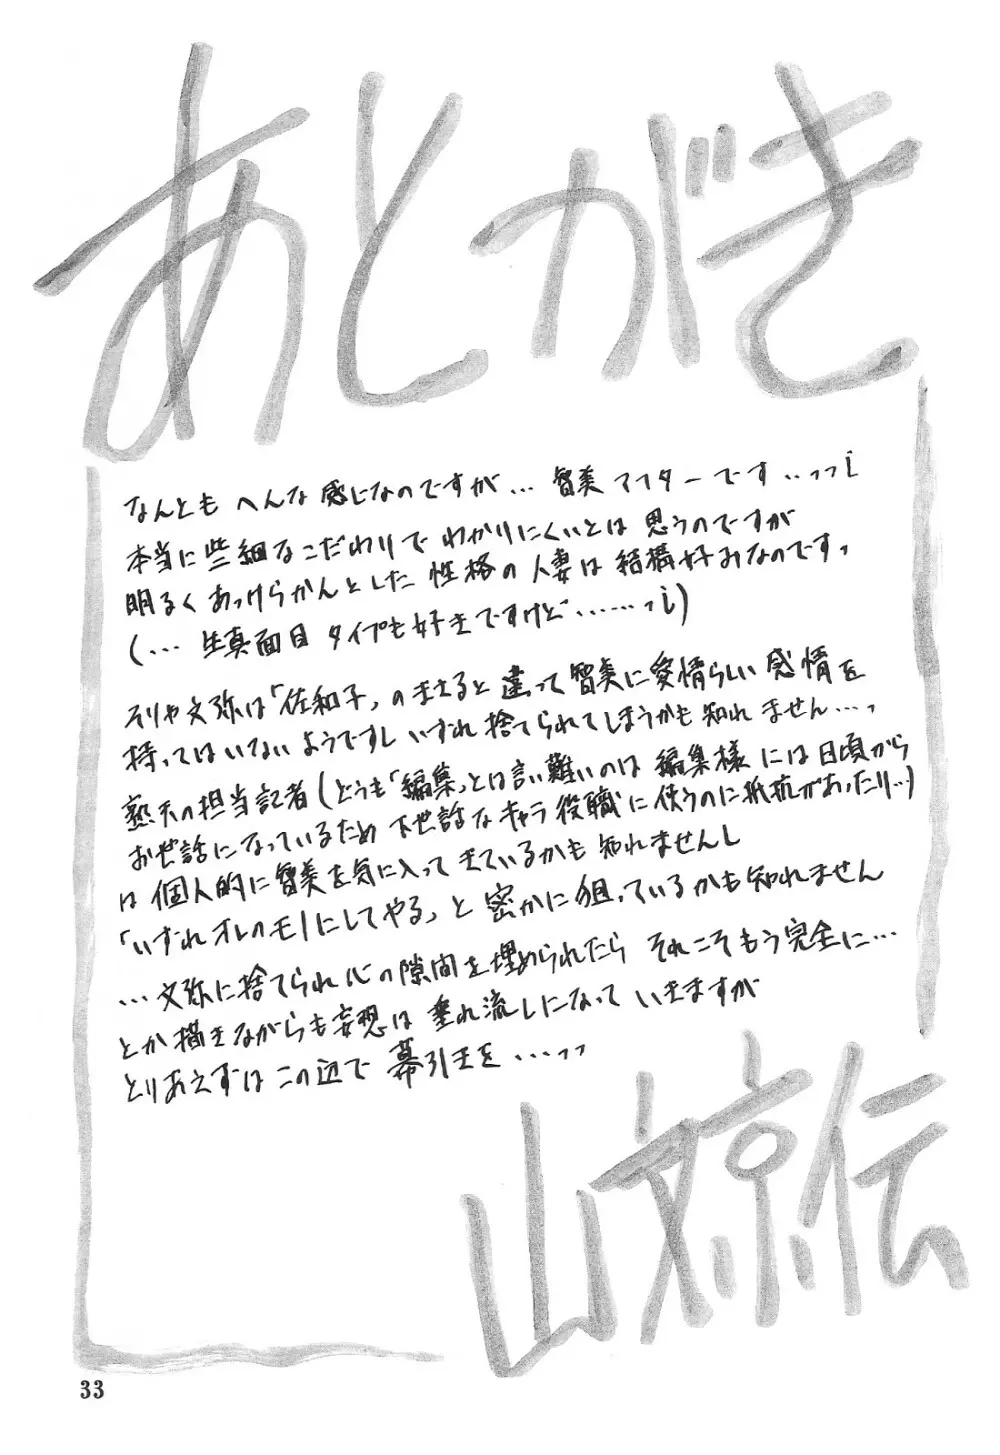 あとがき
なんとも へんな 感じなのですが… 智美アフターです…っっ!
本当に些細なこだわりで わかりにくいとは 思うのですが
明るく あっけらかんとした 性格の 人妻は 結構好みなのです、
(… 生真面目 タイプも好きですけど……っ!)
そりゃ文弥は「佐和子」の まさると 違って 智美に愛情らしい 感情を
持ってはいないようですし いずれ 捨てられてしまうかも 知れ ません…、
熟天の担当記者(どうも「編集」とは言い難いのは 編集様 には 日頃から
お世話になっているため 下世話な キャラ 役職に 使うのに抵抗があったり…)
は 個人的に 智美を気に入って きているかも 知れませんし
「いずれ オレのモノにしてやる」と 密かに 狙っているかも知れません
…文弥に捨てられ 心の隙間を埋められたら それこそもう完全に…
とか描きながらも妄想は 垂れ流しになって いきますが
とりあえずは この辺で 幕引きを …っっ
山文京伝
33